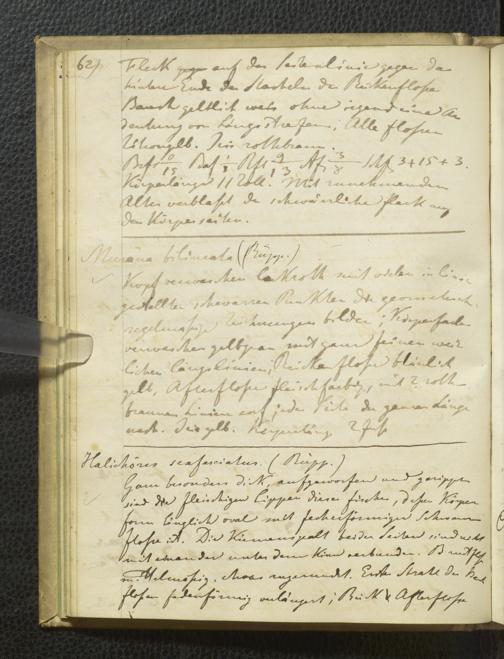 62)
Fleck auf der Seitenlinie gegen das
hintere Ende der Stacheln der Rückenflosse
Bauch gelblich weis ohne irgend eine An
deutung von Längsstreifen; Alle flossen
Citrongelb. Iris rothbraun.
Körperlänge 11 Zoll. Mit zunehmendem
Alter verblaßt der schwärzliche fleck auf
den Körperseiten.
Muräna bilineata (Rüpp.)
Kopf verwaschen lakroth mit vielen in Linien
gestellten schwarzen Punkten die geometrisch
regelmäsige Zeichnungen bilden; Körperfarbe
verwaschen gelbgrau mit ganz feinen weis
lichen längslinien; Rückenflosse bläulich
gelb, Afterflosse fleischfarbig, mit 2 roth
braunen Linien auf jeder Seite der ganzen Länge
nach. Iris gelb. Körperläng 2 Fuß
Halichöres (Rüpp.)
Ganz besonders dick, aufgeworfen und gerippt
sind die fleischigen Lippen dieses fisches, deßen Körper
form länglich oval mit fecherförmiger Schwanz
flosse ist. Die Kiemenspalt beider Seiten sind nicht
mit einander unter dem Kinn verbunden.
etwas zugerundet. Erste Strale der Bauch
flossen fadenförmig verlängert; Rück & Afterflosse